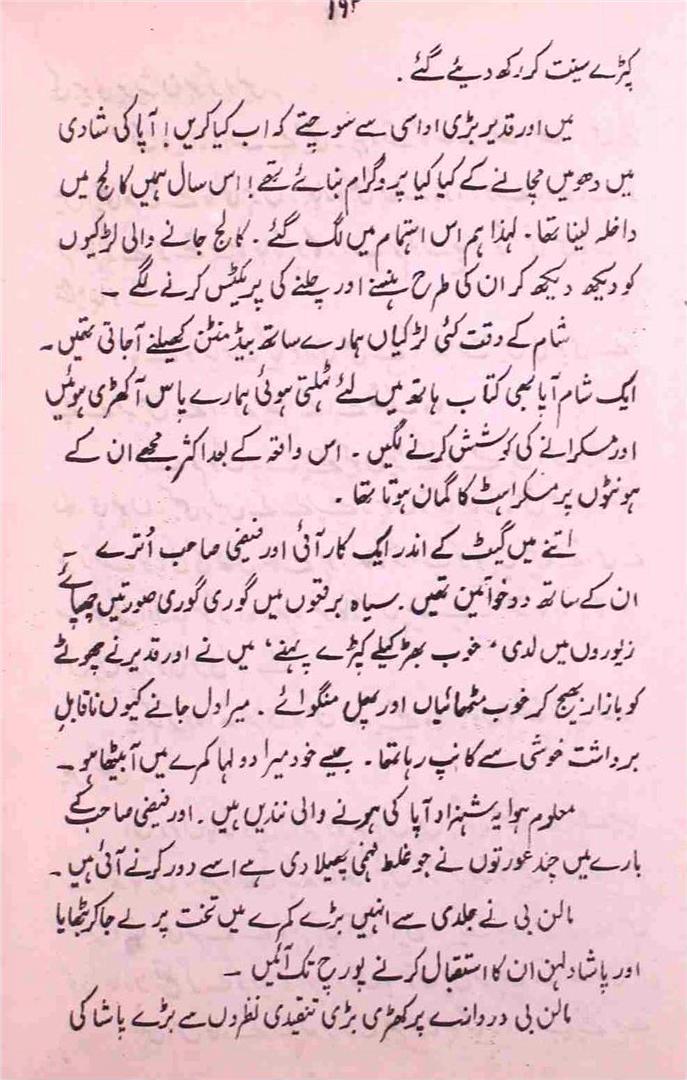 کپڑے سینت کر رکھ دیئے گئے .
میں اور قدیر بڑی اداسی سے سوچتے کہ اب کیا کریں! آپا کی شادی
میں دھومیں مچانے کے کیا کیا پروگرام بنائے تھے! اس سال ہمیں کالج میں
داخلہ لینا تھا. لہذا ہم اس اہتمام میں لگ گئے. کالج جانے والی لڑکیوں
کو دیکھ دیکھ کر ان کی طرح ہنسنے اور چلنے کی پریکٹس کرنے لگے ۔
شام کے وقت کئی لڑکیاں ہمارے ساتھ بیڈمنٹن کھیلنے آجاتی تھیں۔
ایک شام آپا بھی کتاب ہاتھ میں لئے ٹہلتی ہوئی ہمارے پاس آکھڑی ہوئیں
اور مسکرانے کی کوشش کرنے لگیں ۔ اس واقعہ کے بعد اکثر مجھے ان کے
ہونٹوں پر مسکراہٹ کا گمان ہوتا تھا .
اتنے میں گیٹ کے اندر ایک کار آئی اور فیضی صاحب اُترے ۔
ان کے ساتھ دو خواتین تھیں. سیاہ برقعوں میں گوری گوری صورتیں چھپائے
زیوروں میں لدی، خوب بھڑکیلے کپڑے پہنے، میں نے اور قدیر نے چھوٹے
کو بازار بھیج کر خوب مٹھائیاں اور پھل منگوائے . میرا دل جانے کیوں ناقابلِ
برداشت خوشی سے کانپ رہا تھا۔ جیسے خود میرا دولہا کمرے میں آبیٹھا ہو ۔
معلوم ہوا یہ شہزاد آپا کی ہونے والی نندیں ہیں. اور فیضی صاحب کے
بارے میں چند عورتوں نے جو غلط فہمی پھیلا دی ہے اسے دور کرنے آئی ہیں ۔
مالن بی نے جلدی سے انہیں بڑے کمرے میں تخت پر لے جا کر بٹھایا
اور پاشا دلہن ان کا استقبال کرنے پورچ تک آئیں ۔
مالن بی دروازے پر کھڑی بڑی تنقیدی نظروں سے بڑے پاشا کی